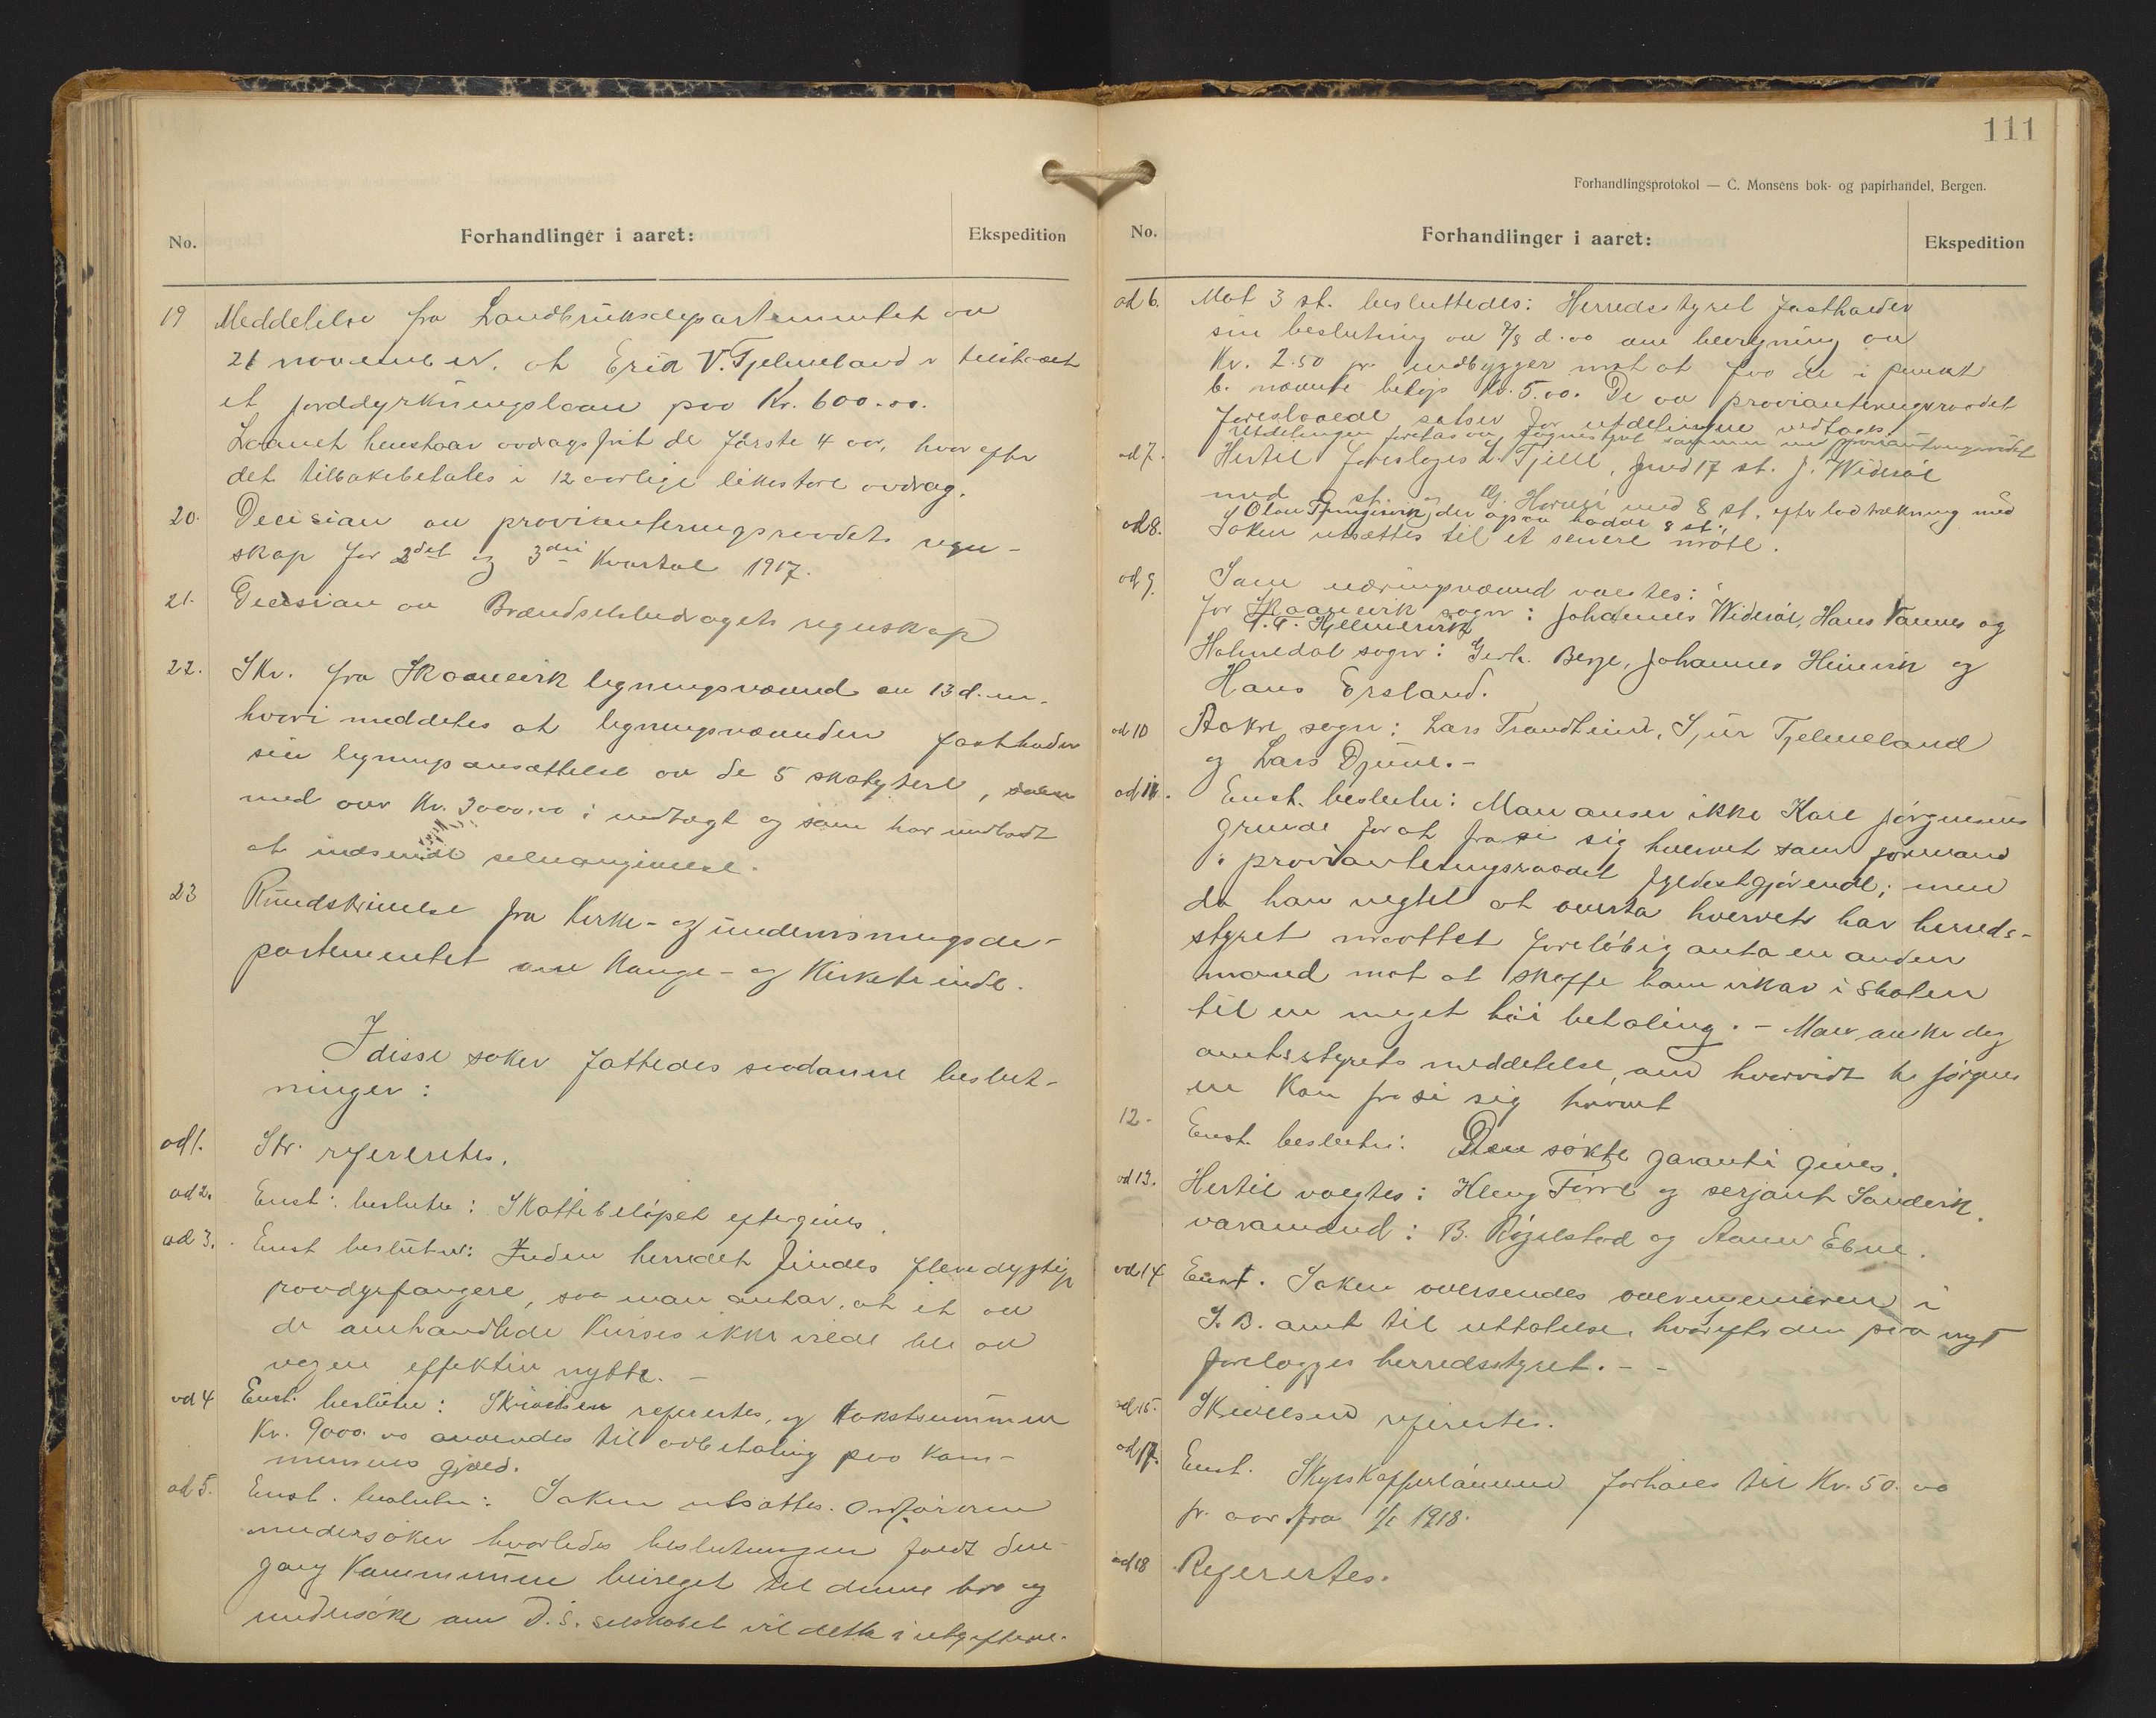 No.
Forhandlinger i aaret:
Ekspedition
19 Meddelelse fra Landbruksdepartementet av
21 november, at Erik V. Tjelmeland er tilstaaet
et jorddyrkningslaan paa Kr. 600.00.
Laanet henstaar avdragsfrit de første 4 aar, hvorefter
det tilbakebetales i 12 aarlige likestore avdrag.
20. Decision av provianteringsraadets regn-
skap for 2det og 3die Kvartal 1917.
21. Decision av Brændselsutvalgets regnskap
22. Skr. fra Skaanevik ligningsnævnd av 13 d.m.
hvori meddeles at ligningsnævnden fastholder
sin ligningsansættelse av de 5 skatydere,
med over Kr. 3000.00 i indtægt og som har undlatt
at indsende selvangivelse.
23 Rundskrivelse fra Kirke- og undervisningsde-
partementet om Konge- og Kirketiende.
I disse saker fattedes saadanne beslut-
ninger:
ad 1. Skr. refereretes.
ad 2. Enst. beslutn: Skattebeløpet eftergives.
ad 3. Enst beslutn: Inden herredet findes flere dygtige
rovdyrfangere, saa man antar, at et av
de omhandlede kurses ikke vilde bli av
nogen effektiv nytte. —
ad 4 Enst. beslutn: Skrivelsen refereretes, og takstsummen
Kr. 9000.00 anvendes til avbetaling paa kom-
munens gjæld.
ad 5. Enst. beslutn: Saken utsættes. Ordføreren
undersøker hvorledes beslutningen faldt den-
gang Kommunen bevilget til denne bro og
undersøke om D.S. selskabet vil delta i utgifterne.
111
Forhandlingsprotokol — C. Monsens bok- og papirhandel, Bergen.
No.
Forhandlinger i aaret:
Ekspedition
ad 6. Mot 3 st. besluttedes: Herredsstyret fastholder
sin beslutning av 7/8 d.aa om bevilgning av
Kr. 2.50 pr. indbygger mot at for de i punkt
6. nævnte beløp Kr. 5.00. De av provianteringsraadet
foreslaaede satser for utdelingene vedtages.
Utdelingen foretas av sognestyret sammen med provianteringsraadet
ad 7. Hertil foreslages L. Tjelle, med 17 st. J. Widsøe
med st. og G. Havnsø med 8 st. efter lodtrækning med
Olav Tungesvik, der ogsaa hadde 8 st.
ad 8. Saken utsættes til et senere møte.
ad 9. Som næringsnævnd valgtes:
for Skaanevik sogn: Johannes Widsøe, Hans Vannes og
T. T. Hjelmevik
Holmedal sogn: Gerh. Berge, Johannes Heimvik og
Hans Ersland.
ad 10 Aakre sogn: Lars Trandheim, Sjur Tjelmeland
og Lars Djuve.-
ad 11. Enst. beslutn: Man anser ikke Karl Jørgensens
grunde for at frasi sig hvervet som formand
i provianteringsraadet fyldestgjørende; men
da han negtet at overta hvervet har herreds-
styret maattet foreløbig anta en anden
mand mot at skaffe ham vikar i skolen
til en meget høi betaling. - Man ønsker dog
amtsstyrets meddelelse, om hvorvidt K. Jørgens
en kan frasi sig hvervet
12. Enst. beslutn: Den søkte garanti gives.
ad 13. Hertil valgtes: Kleng Førre og serjant Sandvik.
varamænd: B. Røgelstad og Aamu Ebne.
ad 14 Enst. Saken oversendes overingeniøren i
S.B. amt til uttalelse, hvorefter den paa nyt
forelægges herredsstyret. - -
ad 15. Skrivelsen refereretes.
ad 17. Enst. Skyskafferlønnen forhøies til Kr. 50.00
pr. aar fra 1/1 1918.
ad 18 Refereretes.